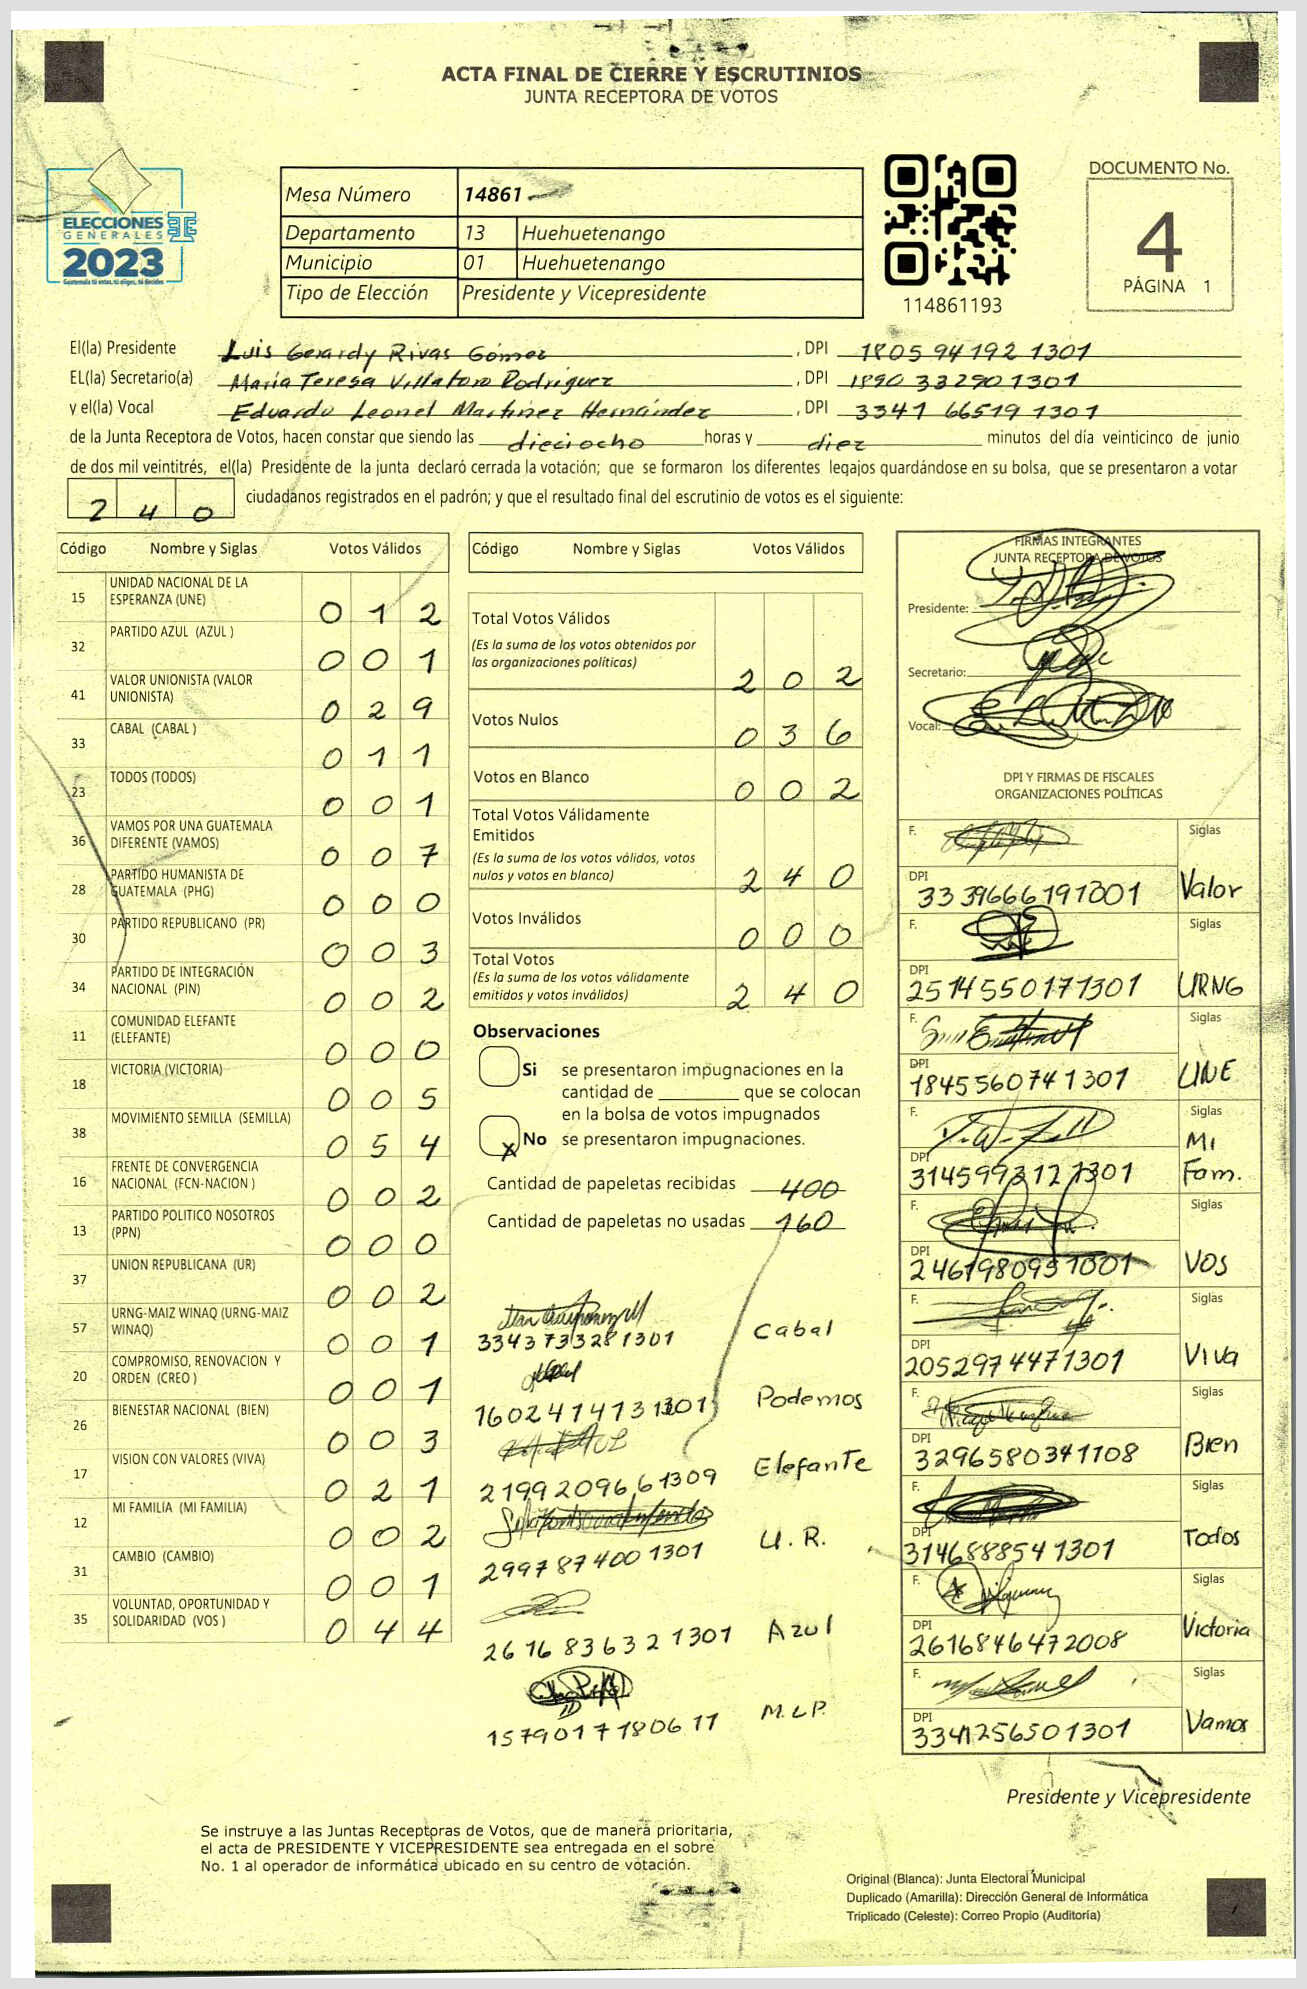 ACTA FINAL DE CIERRE Y ESCRUTINIOS
JUNTA RECEPTORA DE VOTOS
ELECCIONES
GENERALES
2023
Guatemala tú votas, tú eliges, tú decides
Mesa Número 14861
Departamento 13 Huehuetenango
Municipio 01 Huehuetenango
Tipo de Elección Presidente y Vicepresidente
114861193
DOCUMENTO No.
4
PÁGINA 1
El(la) Presidente Luis Gerardy Rivas Gómez , DPI 1805 94192 1301
EL(la) Secretario(a) María Teresa Villatoro Rodríguez , DPI 1890 33290 1301
y el(la) Vocal Eduardo Leonel Martínez Hernández , DPI 3341 66519 1301
de la Junta Receptora de Votos, hacen constar que siendo las dieciocho horas y diez minutos del día veinticinco de junio
de dos mil veintitrés, el(la) Presidente de la junta declaró cerrada la votación; que se formaron los diferentes legajos guardándose en su bolsa, que se presentaron a votar
240 ciudadanos registrados en el padrón; y que el resultado final del escrutinio de votos es el siguiente:
Código Nombre y Siglas Votos Válidos
15 UNIDAD NACIONAL DE LA ESPERANZA (UNE) 012
32 PARTIDO AZUL (AZUL ) 001
41 VALOR UNIONISTA (VALOR UNIONISTA) 029
33 CABAL (CABAL ) 011
23 TODOS (TODOS) 001
36 VAMOS POR UNA GUATEMALA DIFERENTE (VAMOS) 007
28 PARTIDO HUMANISTA DE GUATEMALA (PHG) 000
30 PARTIDO REPUBLICANO (PR) 003
34 PARTIDO DE INTEGRACIÓN NACIONAL (PIN) 002
11 COMUNIDAD ELEFANTE (ELEFANTE) 000
18 VICTORIA (VICTORIA) 005
38 MOVIMIENTO SEMILLA (SEMILLA) 054
16 FRENTE DE CONVERGENCIA NACIONAL (FCN-NACION ) 002
13 PARTIDO POLITICO NOSOTROS (PPN) 000
37 UNION REPUBLICANA (UR) 002
57 URNG-MAIZ WINAQ (URNG-MAIZ WINAQ) 001
20 COMPROMISO, RENOVACION Y ORDEN (CREO ) 001
26 BIENESTAR NACIONAL (BIEN) 003
17 VISION CON VALORES (VIVA) 021
12 MI FAMILIA (MI FAMILIA) 002
31 CAMBIO (CAMBIO) 001
35 VOLUNTAD, OPORTUNIDAD Y SOLIDARIDAD (VOS ) 044
Código Nombre y Siglas Votos Válidos
Total Votos Válidos
(Es la suma de los votos obtenidos por
las organizaciones políticas) 202
Votos Nulos 036
Votos en Blanco 002
Total Votos Válidamente
Emitidos
(Es la suma de los votos válidos, votos
nulos y votos en blanco) 240
Votos Inválidos 000
Total Votos
(Es la suma de los votos válidamente
emitidos y votos inválidos) 240
Observaciones
Si se presentaron impugnaciones en la
cantidad de ________ que se colocan
en la bolsa de votos impugnados
X No se presentaron impugnaciones.
Cantidad de papeletas recibidas 400
Cantidad de papeletas no usadas 160
3343733281301 Cabal
Podemos
2199209661309 Elefante
2997874001301 U.R.
2616836321301 Azul
1579017180611 M.L.P.
FIRMAS INTEGRANTES
JUNTA RECEPTORA DE VOTOS
Presidente:
Secretario:
Vocal:
DPI Y FIRMAS DE FISCALES
ORGANIZACIONES POLÍTICAS
F. Siglas
DPI 3339666191301 Valor
F. Siglas
DPI 2514550171301 URNG
F. Siglas
DPI 1845560741301 UNE
F. Siglas
DPI 3145993121301 Mi Fam.
F. Siglas
DPI VOS
F. Siglas
DPI 2052974471301 Viva
F. Siglas
DPI 3296580341108 Bien
F. Siglas
DPI 3146888541301 Todos
F. Siglas
DPI 2616846472008 Victoria
F. Siglas
DPI 3341256501301 Vamos
Presidente y Vicepresidente
Se instruye a las Juntas Receptoras de Votos, que de manera prioritaria,
el acta de PRESIDENTE Y VICEPRESIDENTE sea entregada en el sobre
No. 1 al operador de informática ubicado en su centro de votación.
Original (Blanca): Junta Electoral Municipal
Duplicado (Amarilla): Dirección General de Informática
Triplicado (Celeste): Correo Propio (Auditoría)